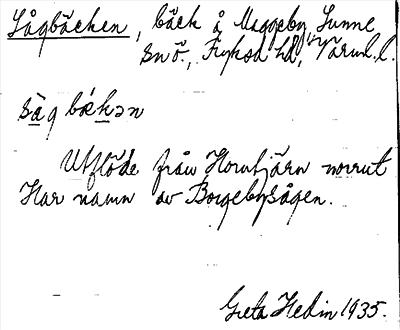 Sågbäcken, bäck å Maggeby, Sunne
snö., Fryksd. hd, Värml. l.
såg bækən
Utflöde från Horntjärn norrut
Har namn av Borgebysågen.
Greta Hedin 1935.